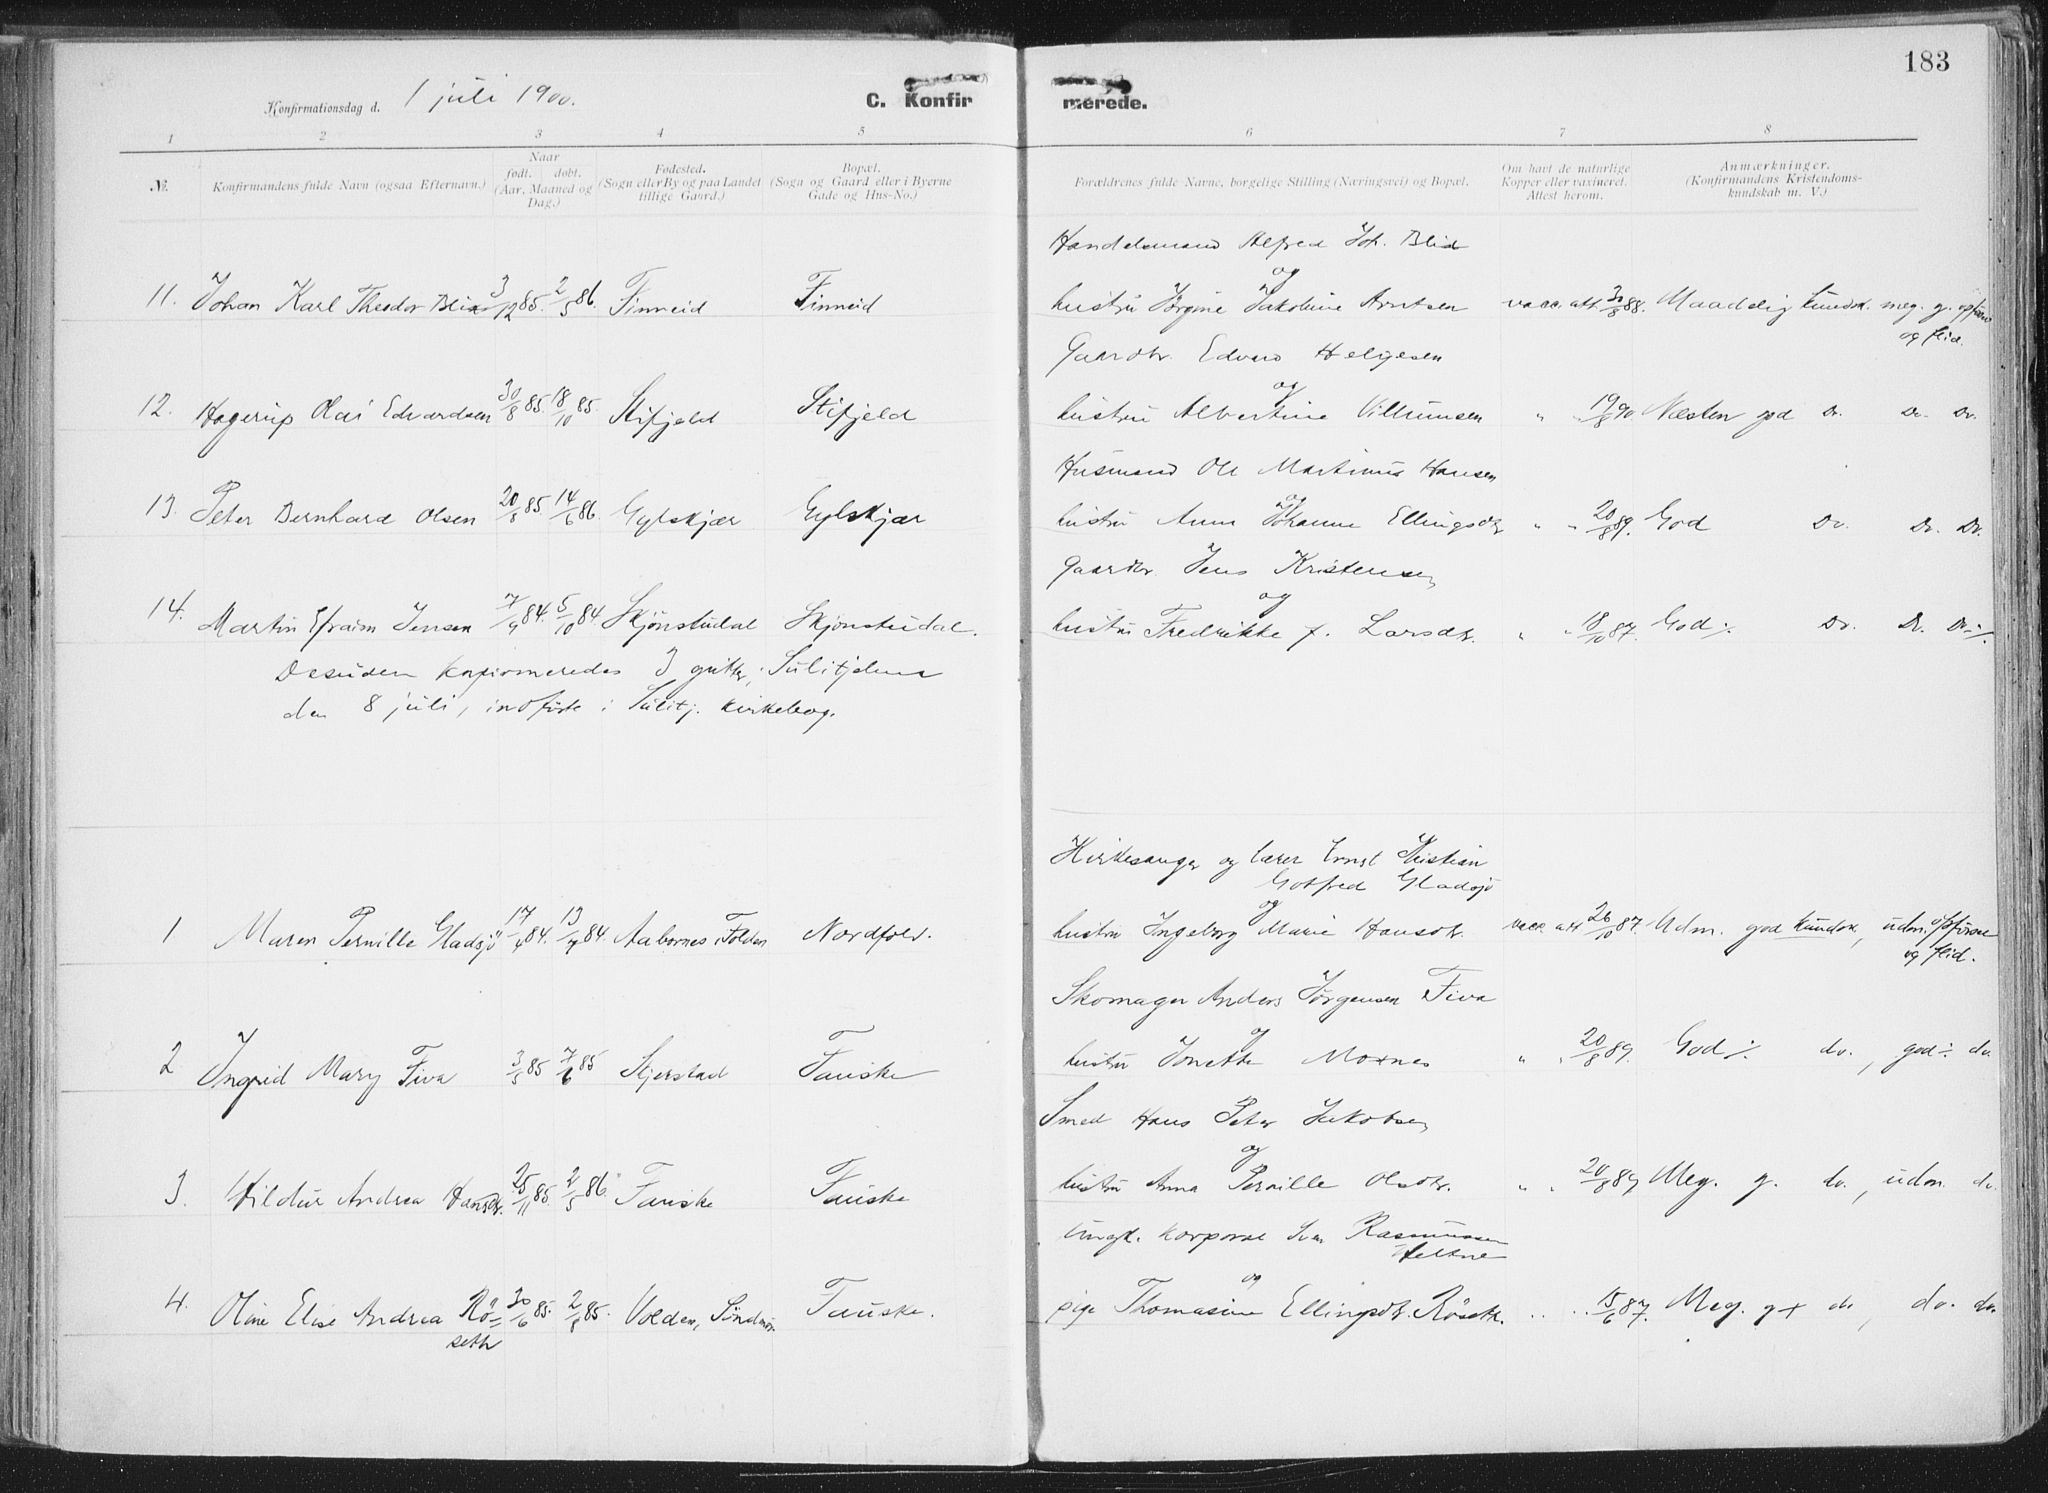 183
Konfirmationsdag d. 1 juli 1900.
C. Konfirmerede.
1 2 3 4 5 6 7 8
№. Konfirmandens fulde Navn (ogsaa Efternavn.) Naar født. døbt. (Aar, Maaned og Dag.) Fødested. (Sogn eller By og paa Landet tillige Gaard.) Bopæl. (Sogn og Gaard eller i Byerne Gade og Hus-No.) Forældrenes fulde Navne, borgelige Stilling (Næringsvei) og Bopæl. Om havt de naturlige Kopper eller vaxineret. Attest herom. Anmærkninger. (Konfirmandens Kristendomskundskab m. V.)
Handelsmand Alfred Joh. Blix
og
11. Johan Karl Theodor Blix 3/12 85. 2/5 86. Finneid Finneid hustru Jørgine Jakobine Arntsen vacc. att. 30/8 88. Maadelig kundsk. meg. g. opførs
og flid.
Gaardbr. Edvard Helgesen
og
12. Hagerup Olai Edvardsen 30/8 85. 18/10 85. Stifjeld Stifjeld hustru Albertine Villumsen " " 19/8 90. Næsten god Do. Do. Do.
Husmand Ole Martinus Hansen
og
13. Peter Bernhard Olsen 20/8 85. 14/6 86. Gylskjær Gylskjær hustru Anna Johanna Ellingsdtr " " 20/8 89. God Do. Do. Do.
Gaardbr. Jens Kristensen
og
14. Martin Efraim Jensen 7/9 84. 5/10 84. Skjönstudal Skjönstudal. hustru Fredrikke f. Larsdtr. " " 18/10 87. God ./. Do. Do. Do ./.
Desuden konfirmeredes 3 gutter i Sulitjelma
den 8 juli, indförte i Sulitj. kirkebog.
Kirkesanger og lærer Ernst Kristian
Gotfred Gladsjö
og
1 Maren Pernille Gladsjö 17/4 84. 13/7 84. Aabornes, Folden Nordfold. hustru Ingeborg Marie Hansdtr. vacc. att 26/10 87. Udm. god kundsk., udm. opförsel
og flid.
Skomager Anders Jörgensen Fiva
og
2 Ingrid Mary Fiva 3/5 85 7/6 85 Skjerstad Fauske hustru Jonette Moxnes " " 20/8 89. God ./. do., god ./. do.
Smed Hans Peter Jakobsen
og
3. Hildur Andrea Hansdtr. 25/11 85. 2/5 86. Fauske Fauske hustru Anna Pernille Olsdtr. " " 20/8 89 Meg. g. do., udm. do.
ungk. korporal Iver Rasmussen
og
4. Oline Elise Andrea Rö- 30/6 85. 2/8 85. Volden, Söndmör. Fauske. pige Thomasine Ellingsdtr. Röseth. " " 15/6 87. Meg. g + do, do. do.
seth